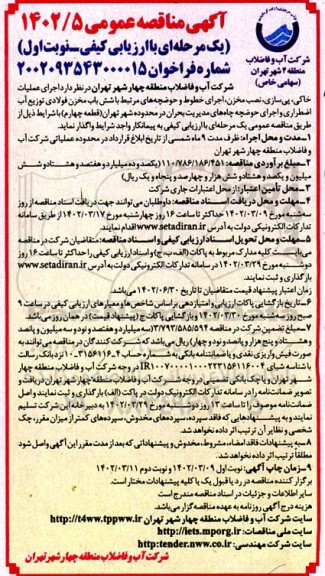 آگهی مناقصه عمومی ۱۴۰۲/۵
(یک مرحله‌ای با ارزیابی کیفی - نوبت اول)
شماره فراخوان ۲۰۰۲۰۹۳۵۴۳۰۰۰۰۱۵
شرکت آب و فاضلاب
منطقه ۴ شهر تهران
(سهامی خاص)
شرکت آب و فاضلاب منطقه چهار شهر تهران در نظر دارد اجرای عملیات
خاکی، پی‌سازی، نصب مخزن، اجرای خطوط و حوضچه‌های مرتبط با شش باب مخزن فولادی توزیع آب
اضطراری و اجرای حوضچه چاه‌های مدیریت بحران در محدوده شهر تهران (قطعه چهارم) با شرایط ذیل از
طریق مناقصه عمومی یک مرحله‌ای با ارزیابی کیفی به پیمانکار واجد شرایط واگذار نماید.
۱- مدت و محل اجرا: ظرف مدت ۹ ماه شمسی از تاریخ ابلاغ قرارداد در محدوده عملیاتی شرکت آب
و فاضلاب منطقه ۴ شهر تهران.
۲- مبلغ برآوردی مناقصه: ۱۱۰/۷۸۶/۱۸۶/۴۵۱ (یکصد و ده میلیارد و هفتصد و هشتاد و شش
میلیون و یکصد و هشتاد و شش هزار و چهارصد و پنجاه و یک ریال)
۳- محل تأمین اعتبار: از محل اعتبارات جاری شرکت
۴- مهلت و محل دریافت اسناد مناقصه: داوطلبان می‌توانند جهت دریافت اسناد مناقصه از روز
سه‌شنبه مورخ ۱۴۰۲/۰۳/۰۹ حداکثر تا ساعت ۱۶ روز چهارشنبه مورخ ۱۴۰۲/۰۳/۱۷ از طریق سامانه
تدارکات الکترونیکی دولت به آدرس www.setadiran.ir اقدام نمایند.
۵- مهلت و محل تحویل اسناد ارزیابی کیفی و اسناد مناقصه: متقاضیان شرکت در مناقصه
می‌بایست کلیه مدارک مربوط به پاکات (الف، ب، ج) و اسناد ارزیابی کیفی را حداکثر تا ساعت ۱۶ روز
دوشنبه مورخ ۱۴۰۲/۰۳/۲۹ در سامانه تدارکات الکترونیکی دولت به آدرس www.setadiran.ir
بارگذاری و ثبت نمایند.
زمان اعتبار پیشنهاد قیمت متقاضیان تا تاریخ ۱۴۰۲/۰۶/۳۰ می‌باشد.
۶- تاریخ بازگشایی پاکات ارزیابی و امتیازدهی بر اساس شاخص‌ها و معیارهای ارزیابی کیفی در ساعت ۹
صبح روز سه‌شنبه مورخ ۱۴۰۲/۰۳/۳۰ و بازگشایی پاکات ج (پیشنهاد قیمت) در همان روز می‌باشد.
۷- مبلغ تضمین شرکت در مناقصه ۳/۷۹۳/۵۸۵/۵۹۴ (سه میلیارد و هفتصد و نود و سه میلیون و پانصد
و هشتاد و پنج هزار و پانصد و نود و چهار) ریال می‌باشد که شرکت کنندگان در مناقصه می‌توانند به
صورت فیش واریزی نقدی و یا ضمانتنامه بانکی به شماره حساب
نزد بانک رسالت
با شناسه شبای
در وجه شرکت آب و فاضلاب منطقه چهار
شهر تهران و یا چک بانکی تضمینی در وجه شرکت آب و فاضلاب منطقه چهار شهر تهران دریافت و
تصویر ضمانتنامه را در سامانه تدارکات الکترونیک دولت در پاکت (الف) بارگذاری و ثبت نمایند و اصل
ضمانتنامه موصوف را تا ساعت ۱۳ روز دوشنبه مورخ ۱۴۰۲/۰۳/۲۹ به دبیرخانه این شرکت تسلیم
نمایند و به پیشنهادهایی که فاقد سپرده، سپرده‌های مخدوش، سپرده‌های کمتر از میزان مقرر، چک
شخصی و نظایر آن ترتیب اثر داده نخواهد شد.
۸- به پیشنهادات فاقد امضاء، مشروط، مخدوش و پیشنهاداتی که بعد از مدت مقرر این آگهی واصل شود
مطلقاً ترتیب اثر داده نخواهد شد.
۹- زمان چاپ آگهی: نوبت اول ۱۴۰۲/۰۳/۰۹ و نوبت دوم ۱۴۰۲/۰۳/۱۱
برگزار کننده مناقصه در رد یا قبول یک یا کلیه پیشنهادات مختار است.
سایر اطلاعات و جزئیات در اسناد مناقصه مندرج است
هزینه درج آگهی روزنامه به عهده مناقصه گزار می‌باشد.
سایت شرکت آب و فاضلاب منطقه چهار شهر تهران http://t4ww.tppww.ir
سایت ملی مناقصات: http://iets.mporg.ir
سایت شرکت مهندسی: http:tender.nww.co.ir
شرکت آب و فاضلاب منطقه چهار شهر تهران